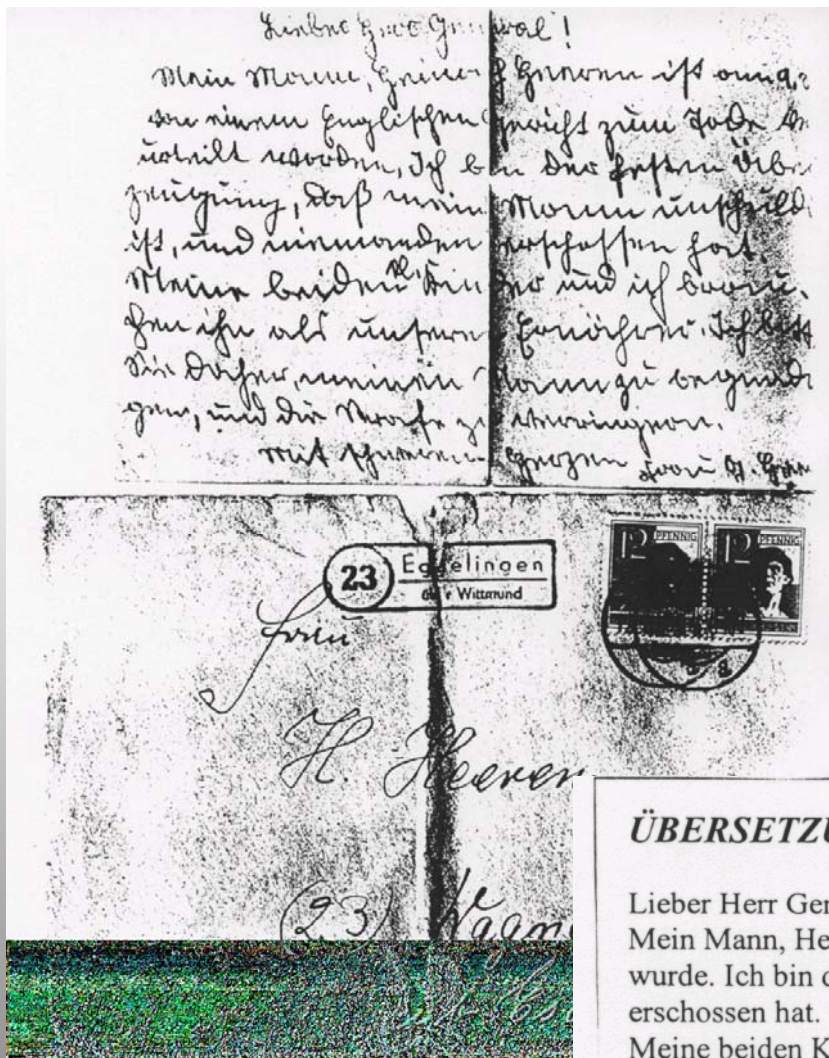 Lieber Herr General!
Mein Mann, Heinrich Heeren ist
von einem Englischen Gericht zum Tode ver
urteilt worden, Ich bin der festen Über
zeugung, daß mein Mann unschuld
ist, und niemanden erschossen hat.
Meine beiden kl. Kinder und ich brau
chen ihn als unseren Ernährer. Ich bitt
Sie daher, meinen Mann zu begnadi
gen, und die Strafe zu verringern.
Mit schweren Herzen Frau H. Heer
23 Eggelingen
über Wittmund
12 PFENNIG 12 PFENNIG
Frau
H. Heeren
(23)
ÜBERSETZU
Lieber Herr Gen
Mein Mann, He
wurde. Ich bin d
erschossen hat.
Meine beiden K